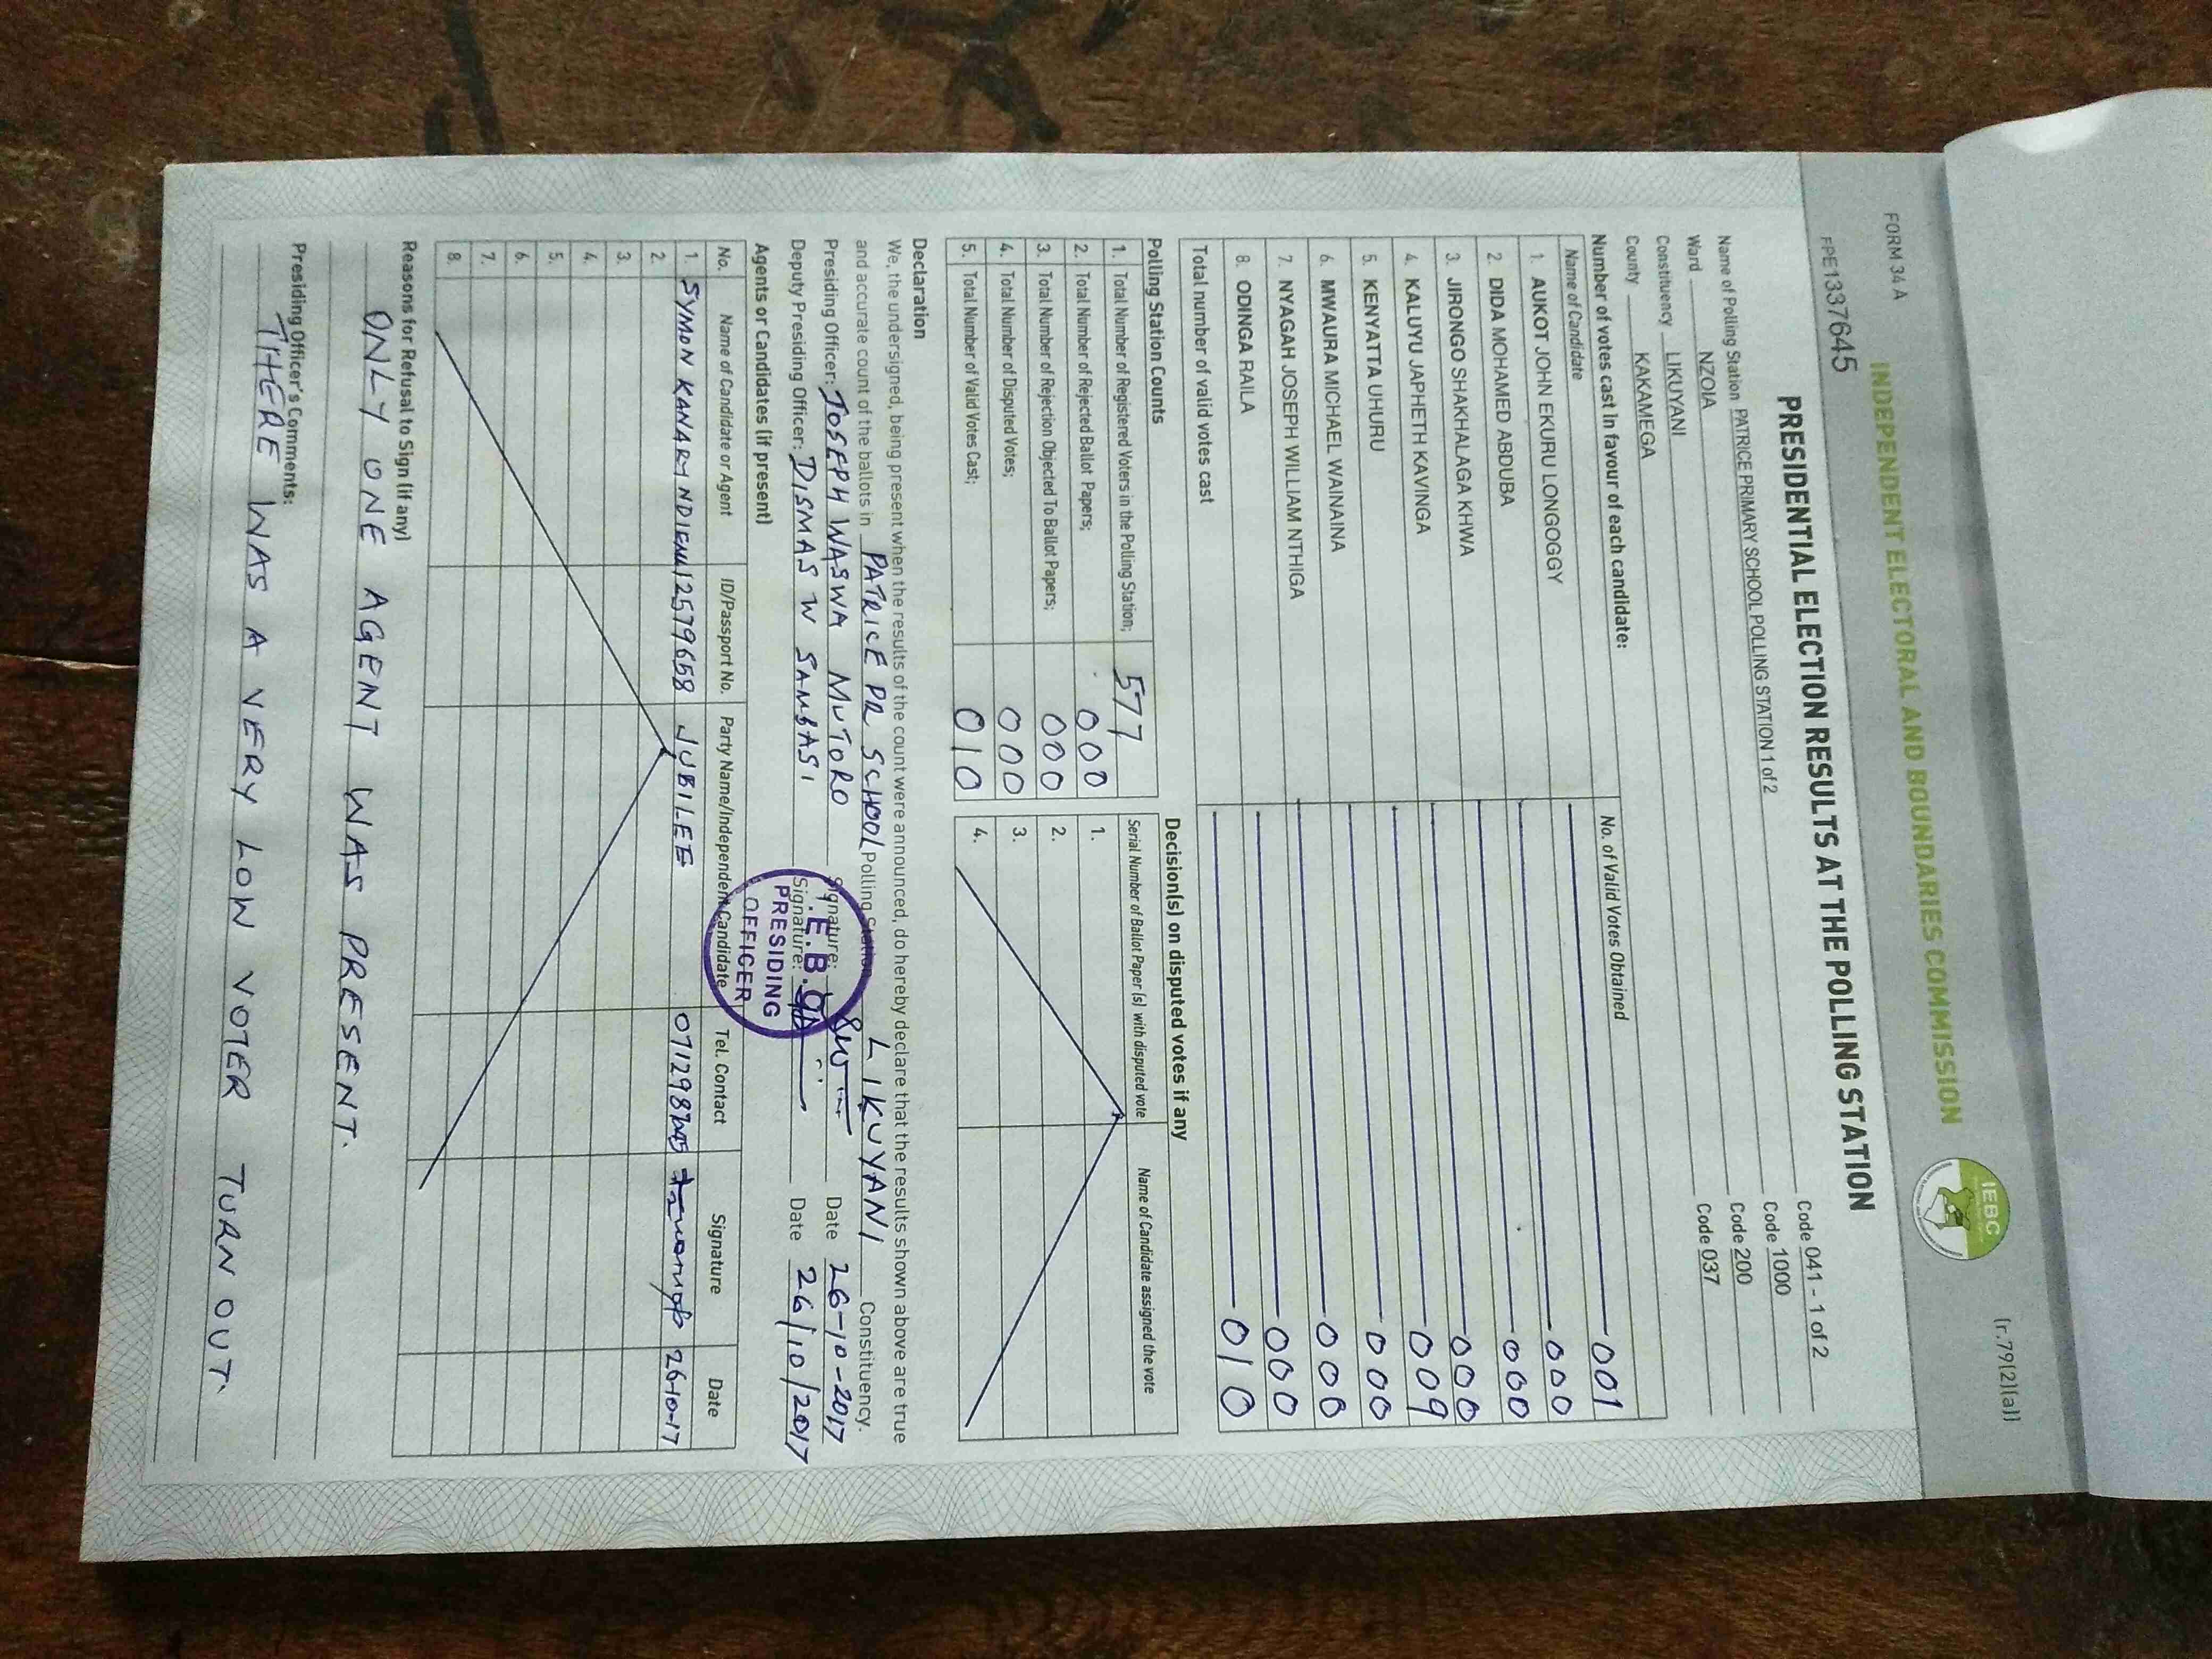 FORM 34 A
(r.79(2)(a))
INDEPENDENT ELECTORAL AND BOUNDARIES COMMISSION
IEBC
FPE1337645
PRESIDENTIAL ELECTION RESULTS AT THE POLLING STATION
Name of Polling Station PATRICE PRIMARY SCHOOL POLLING STATION 1 of 2 Code 041 - 1 of 2
Ward NZOIA Code 1000
Constituency LIKUYANI Code 200
County KAKAMEGA Code 037
Number of votes cast in favour of each candidate:
Name of Candidate No. of Valid Votes Obtained
1. AUKOT JOHN EKURU LONGOGGY 001
2. DIDA MOHAMED ABDUBA 000
3. JIRONGO SHAKHALAGA KHWA 000
4. KALUYU JAPHETH KAVINGA 000
5. KENYATTA UHURU 009
6. MWAURA MICHAEL WAINAINA 000
7. NYAGAH JOSEPH WILLIAM NTHIGA 000
8. ODINGA RAILA 000
Total number of valid votes cast 010
Polling Station Counts
1. Total Number of Registered Voters in the Polling Station; 577
2. Total Number of Rejected Ballot Papers; 000
3. Total Number of Rejection Objected To Ballot Papers; 000
4. Total Number of Disputed Votes; 000
5. Total Number of Valid Votes Cast; 010
Decision(s) on disputed votes if any
Serial Number of Ballot Paper (s) with disputed vote Name of Candidate assigned the vote
1.
2.
3.
4.
Declaration
We, the undersigned, being present when the results of the count were announced, do hereby declare that the results shown above are true
and accurate count of the ballots in PATRICE PR SCHOOL Polling Station LIKUYANI Constituency.
Presiding Officer: JOSEPH WASWA MUTORO Signature: Date 26-10-2017
Deputy Presiding Officer: DISMAS W SAMBASI Signature: Date 26/10/2017
I.E.B.C
PRESIDING
OFFICER
Agents or Candidates (if present)
No. Name of Candidate or Agent ID/Passport No. Party Name/Independent Candidate Tel. Contact Signature Date
1. SYMON KANARY 12579658 JUBILEE 26-10-17
2.
3.
4.
5.
6.
7.
8.
Reasons for Refusal to Sign (if any)
ONLY ONE AGENT WAS PRESENT.
Presiding Officer's Comments:
THERE WAS A VERY LOW VOTER TURN OUT.